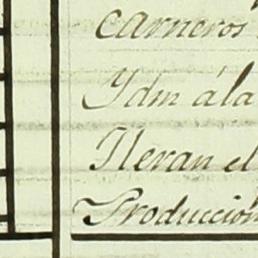 carneros
Ydm á la
lleran el
Producción